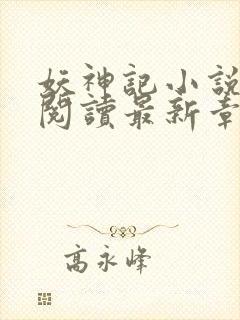 妖神記小說
閱讀最新章
高永峰